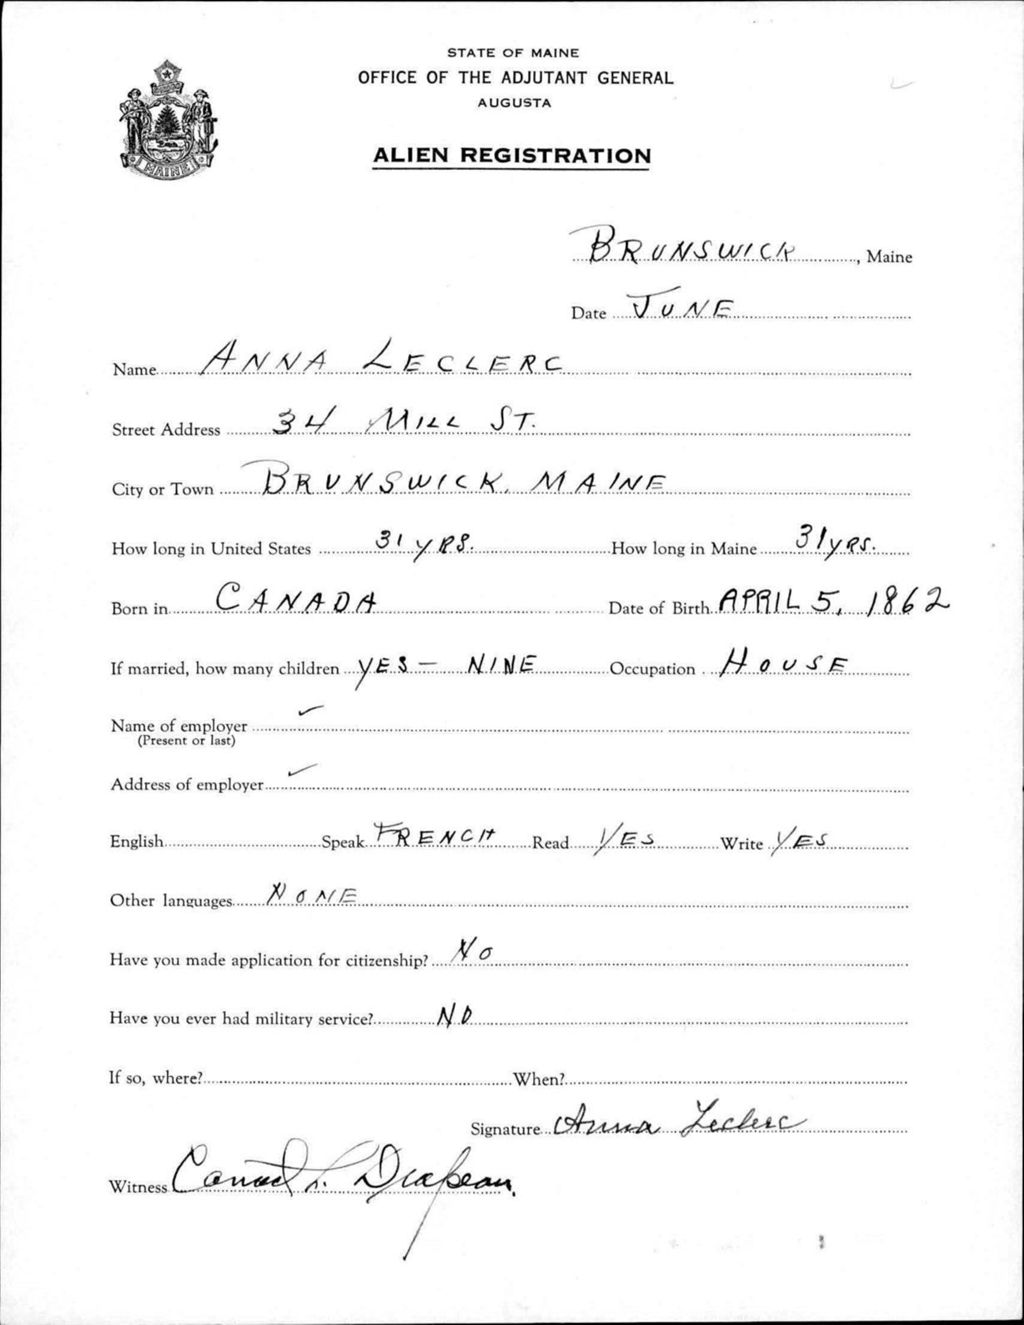 STATE OF MAINE
OFFICE OF THE ADJUTANT GENERAL
AUGUSTA
ALIEN REGISTRATION
MAINE
BRUNSWICK, Maine
Date JUNE
Name ANNA LECLERC
Street Address 34 MILL ST.
City or Town BRUNSWICK, MAINE
How long in United States 31 yRS. How long in Maine 31 yRS.
Born in CANADA Date of Birth APRIL 5, 1862
If married, how many children YES — NINE Occupation HOUSE
Name of employer
(Present or last)
Address of employer
English Speak FRENCH Read YES Write YES
Other languages NONE
Have you made application for citizenship? NO
Have you ever had military service? NO
If so, where? When?
Signature Anna Leclerc
Witness L. Drapeau